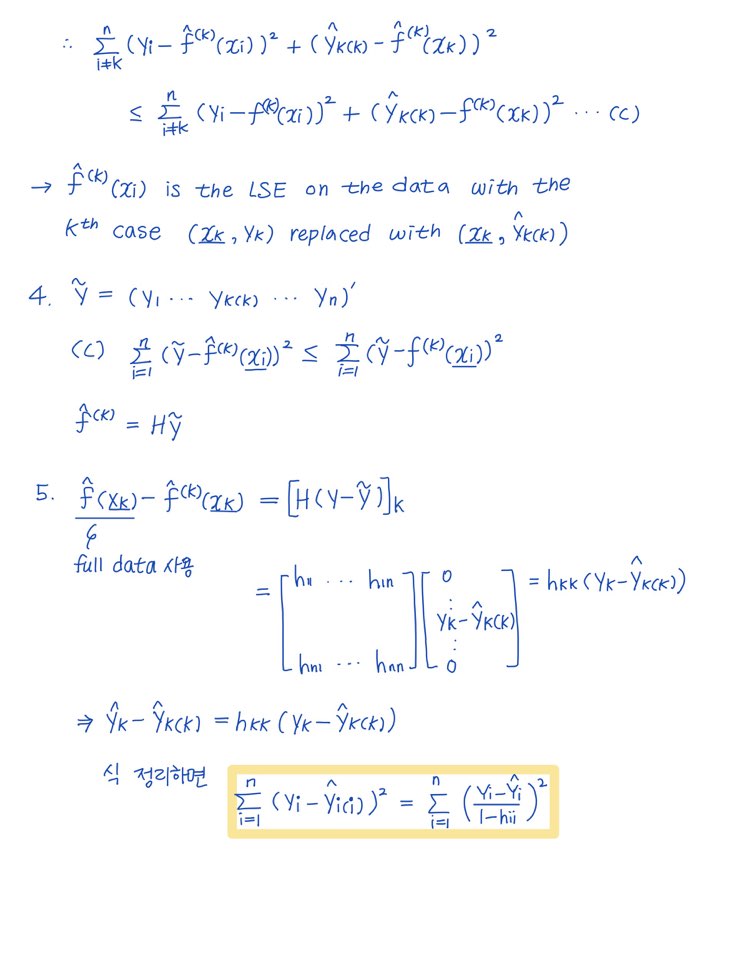 ∴ Σ_{i≠k}^{n} (yi − f̂^(k)(xi))² + (ŷk(k) − f̂^(k)(xk))²
≤ Σ_{i≠k}^{n} (yi − f^(k)(xi))² + (ŷk(k) − f^(k)(xk))² ··· (c)
→ f̂^(k)(xi) is the LSE on the data with the
kth case (xk, yk) replaced with (xk, ŷk(k))
4. ỹ = (y1 ··· yk(k) ··· yn)′
(c) Σ_{i=1}^{n} (ỹ − f̂^(k)(xi))² ≤ Σ_{i=1}^{n} (ỹ − f^(k)(xi))²
f̂^(k) = Hỹ
5. f̂(xk) − f̂^(k)(xk) = [H(y − ỹ)]k
full data 사용
= [h11 ··· h1n hn1 ··· hnn] [0 ⋮ yk − ŷk(k) ⋮ 0] = hkk(yk − ŷk(k))
⇒ ŷk − ŷk(k) = hkk(yk − ŷk(k))
식 정리하면 Σ_{i=1}^{n} (yi − ŷi(i))² = Σ_{i=1}^{n} ((yi − ŷi)/(1 − hii))²